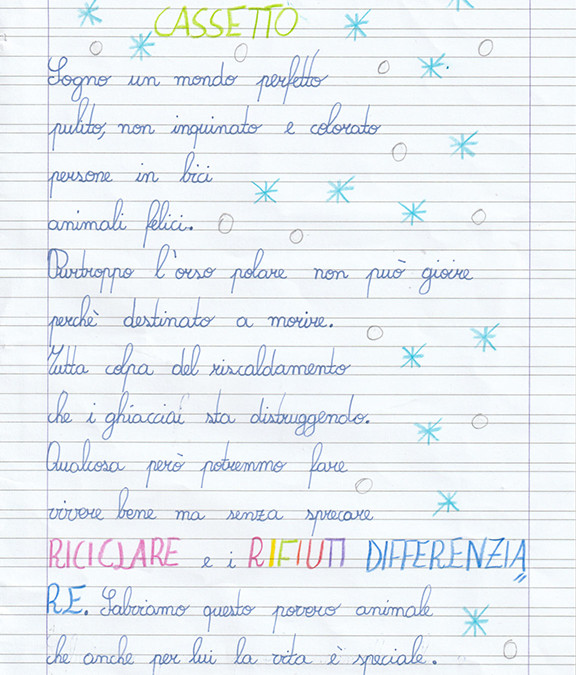 CASSETTO
Sogno un mondo perfetto
pulito, non inquinato e colorato
persone in bici
animali felici.
Purtroppo l'orso polare non può gioire
perchè destinato a morire.
Tutta colpa del riscaldamento
che i ghiacciai sta distruggendo.
Qualcosa però potremmo fare
vivere bene ma senza sprecare
RICICLARE e i RIFIUTI DIFFERENZIA
RE. Salviamo questo povero animale
che anche per lui la vita è speciale.